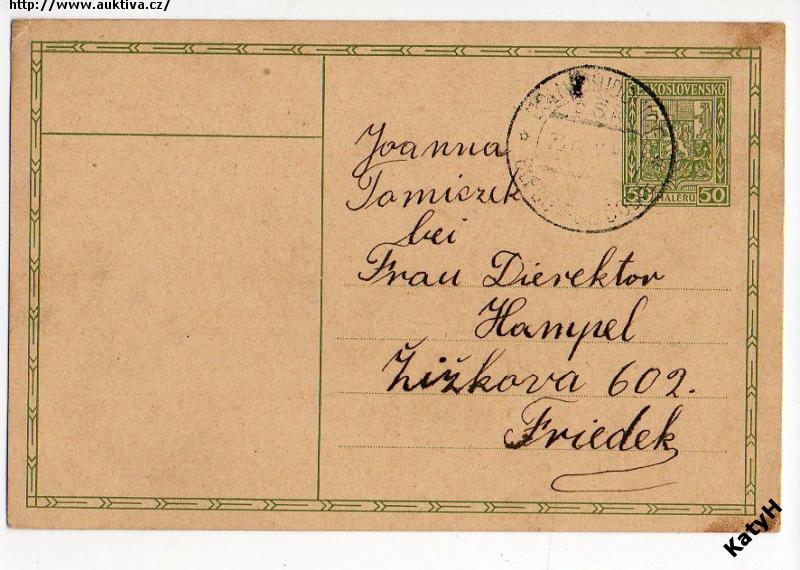 http://www.auktiva.cz/
ČESKOSLOVENSKO
50 HALÉŘŮ 50
Joanna
Tomiczek
bei
Frau Dierektor
Hampel
Žižkova 602.
Friedek
KatyH